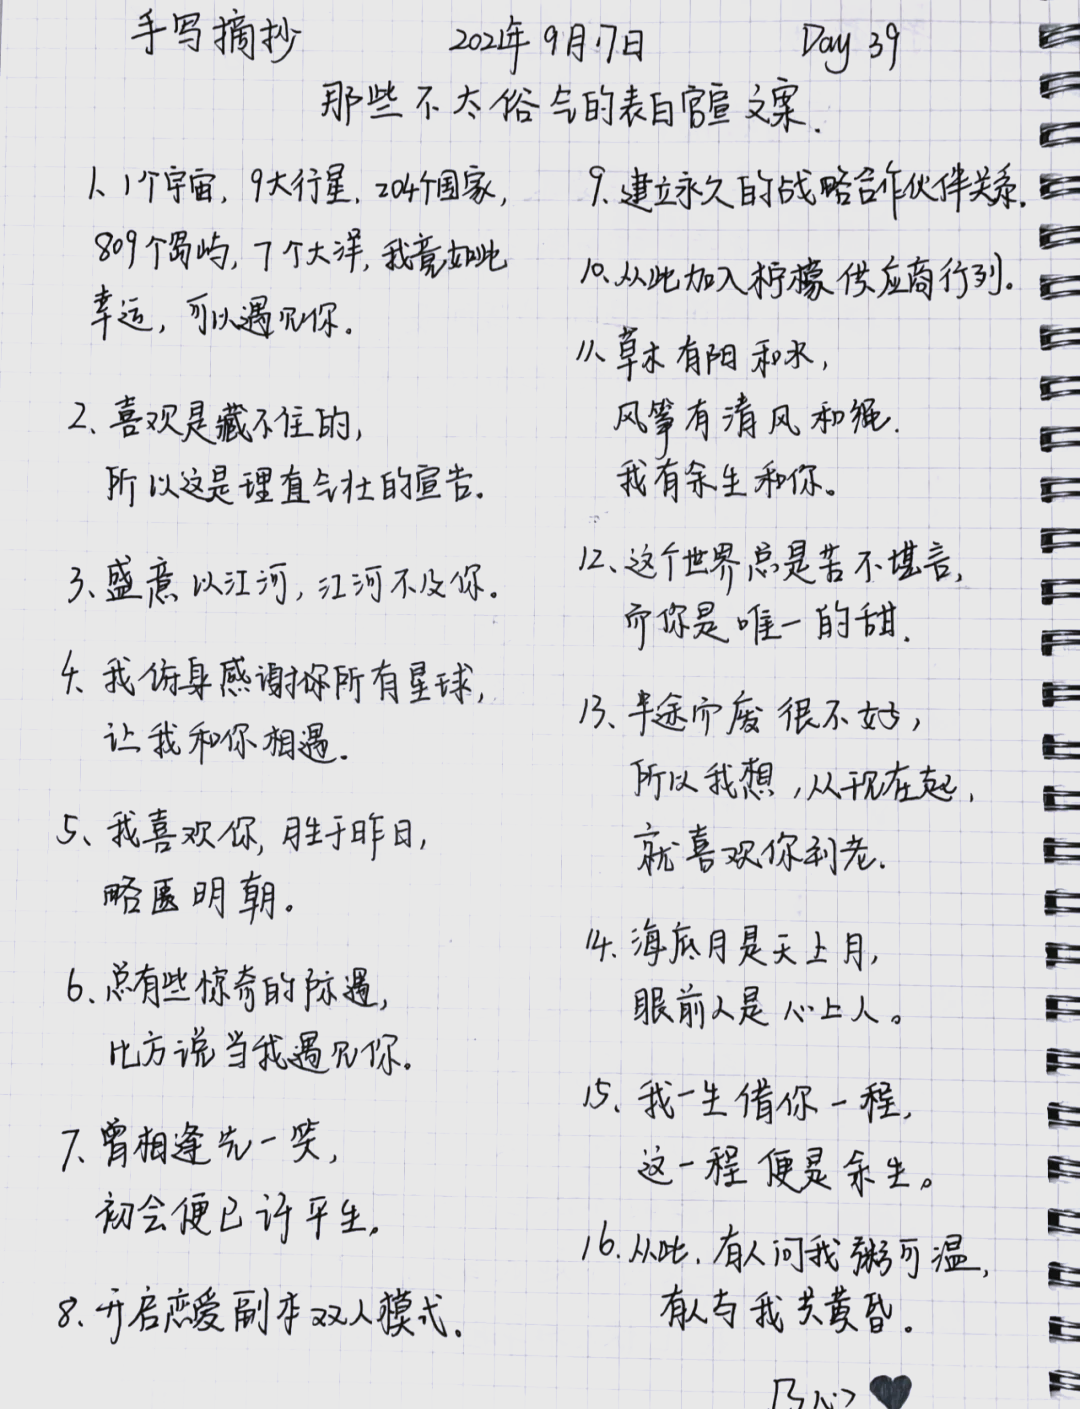 手写摘抄 2021年9月17日 Day 39
那些不太俗气的表白官宣文案.
1、1个宇宙, 9大行星, 204个国家,
809个岛屿, 7个大洋, 我竟如此
幸运, 可以遇见你.
2、喜欢是藏不住的,
所以这是理直气壮的宣告.
3、盛意以江河, 江河不及你.
4、我俯身感谢你所有星球,
让我和你相遇.
5、我喜欢你, 胜于昨日,
略匮明朝。
6、总有些惊奇的际遇,
比方说当我遇见你.
7、曾相逢先一笑,
初会便已许平生.
8、开启恋爱副本双人模式.
9.建立永久的战略合作伙伴关系.
10.从此加入柠檬供应商行列.
11、草木有阳和水,
风筝有清风和绳.
我有余生和你。
12、这个世界总是苦不堪言,
而你是唯一的甜.
13、半途而废很不好,
所以我想,从现在起,
就喜欢你到老.
14.海底月是天上月,
眼前人是心上人。
15、我一生借你一程,
这一程便是余生。
16.从此, 有人问我粥可温,
有人与我共黄昏。